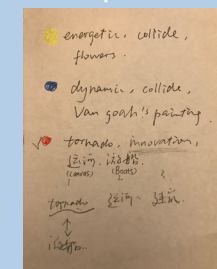 energetic, collide,
flowers.
dynamic, collide,
Van goah's painting.
tornado, innovation,
运河. 游船.
(canals) (Boats)
tornado 运河
游船